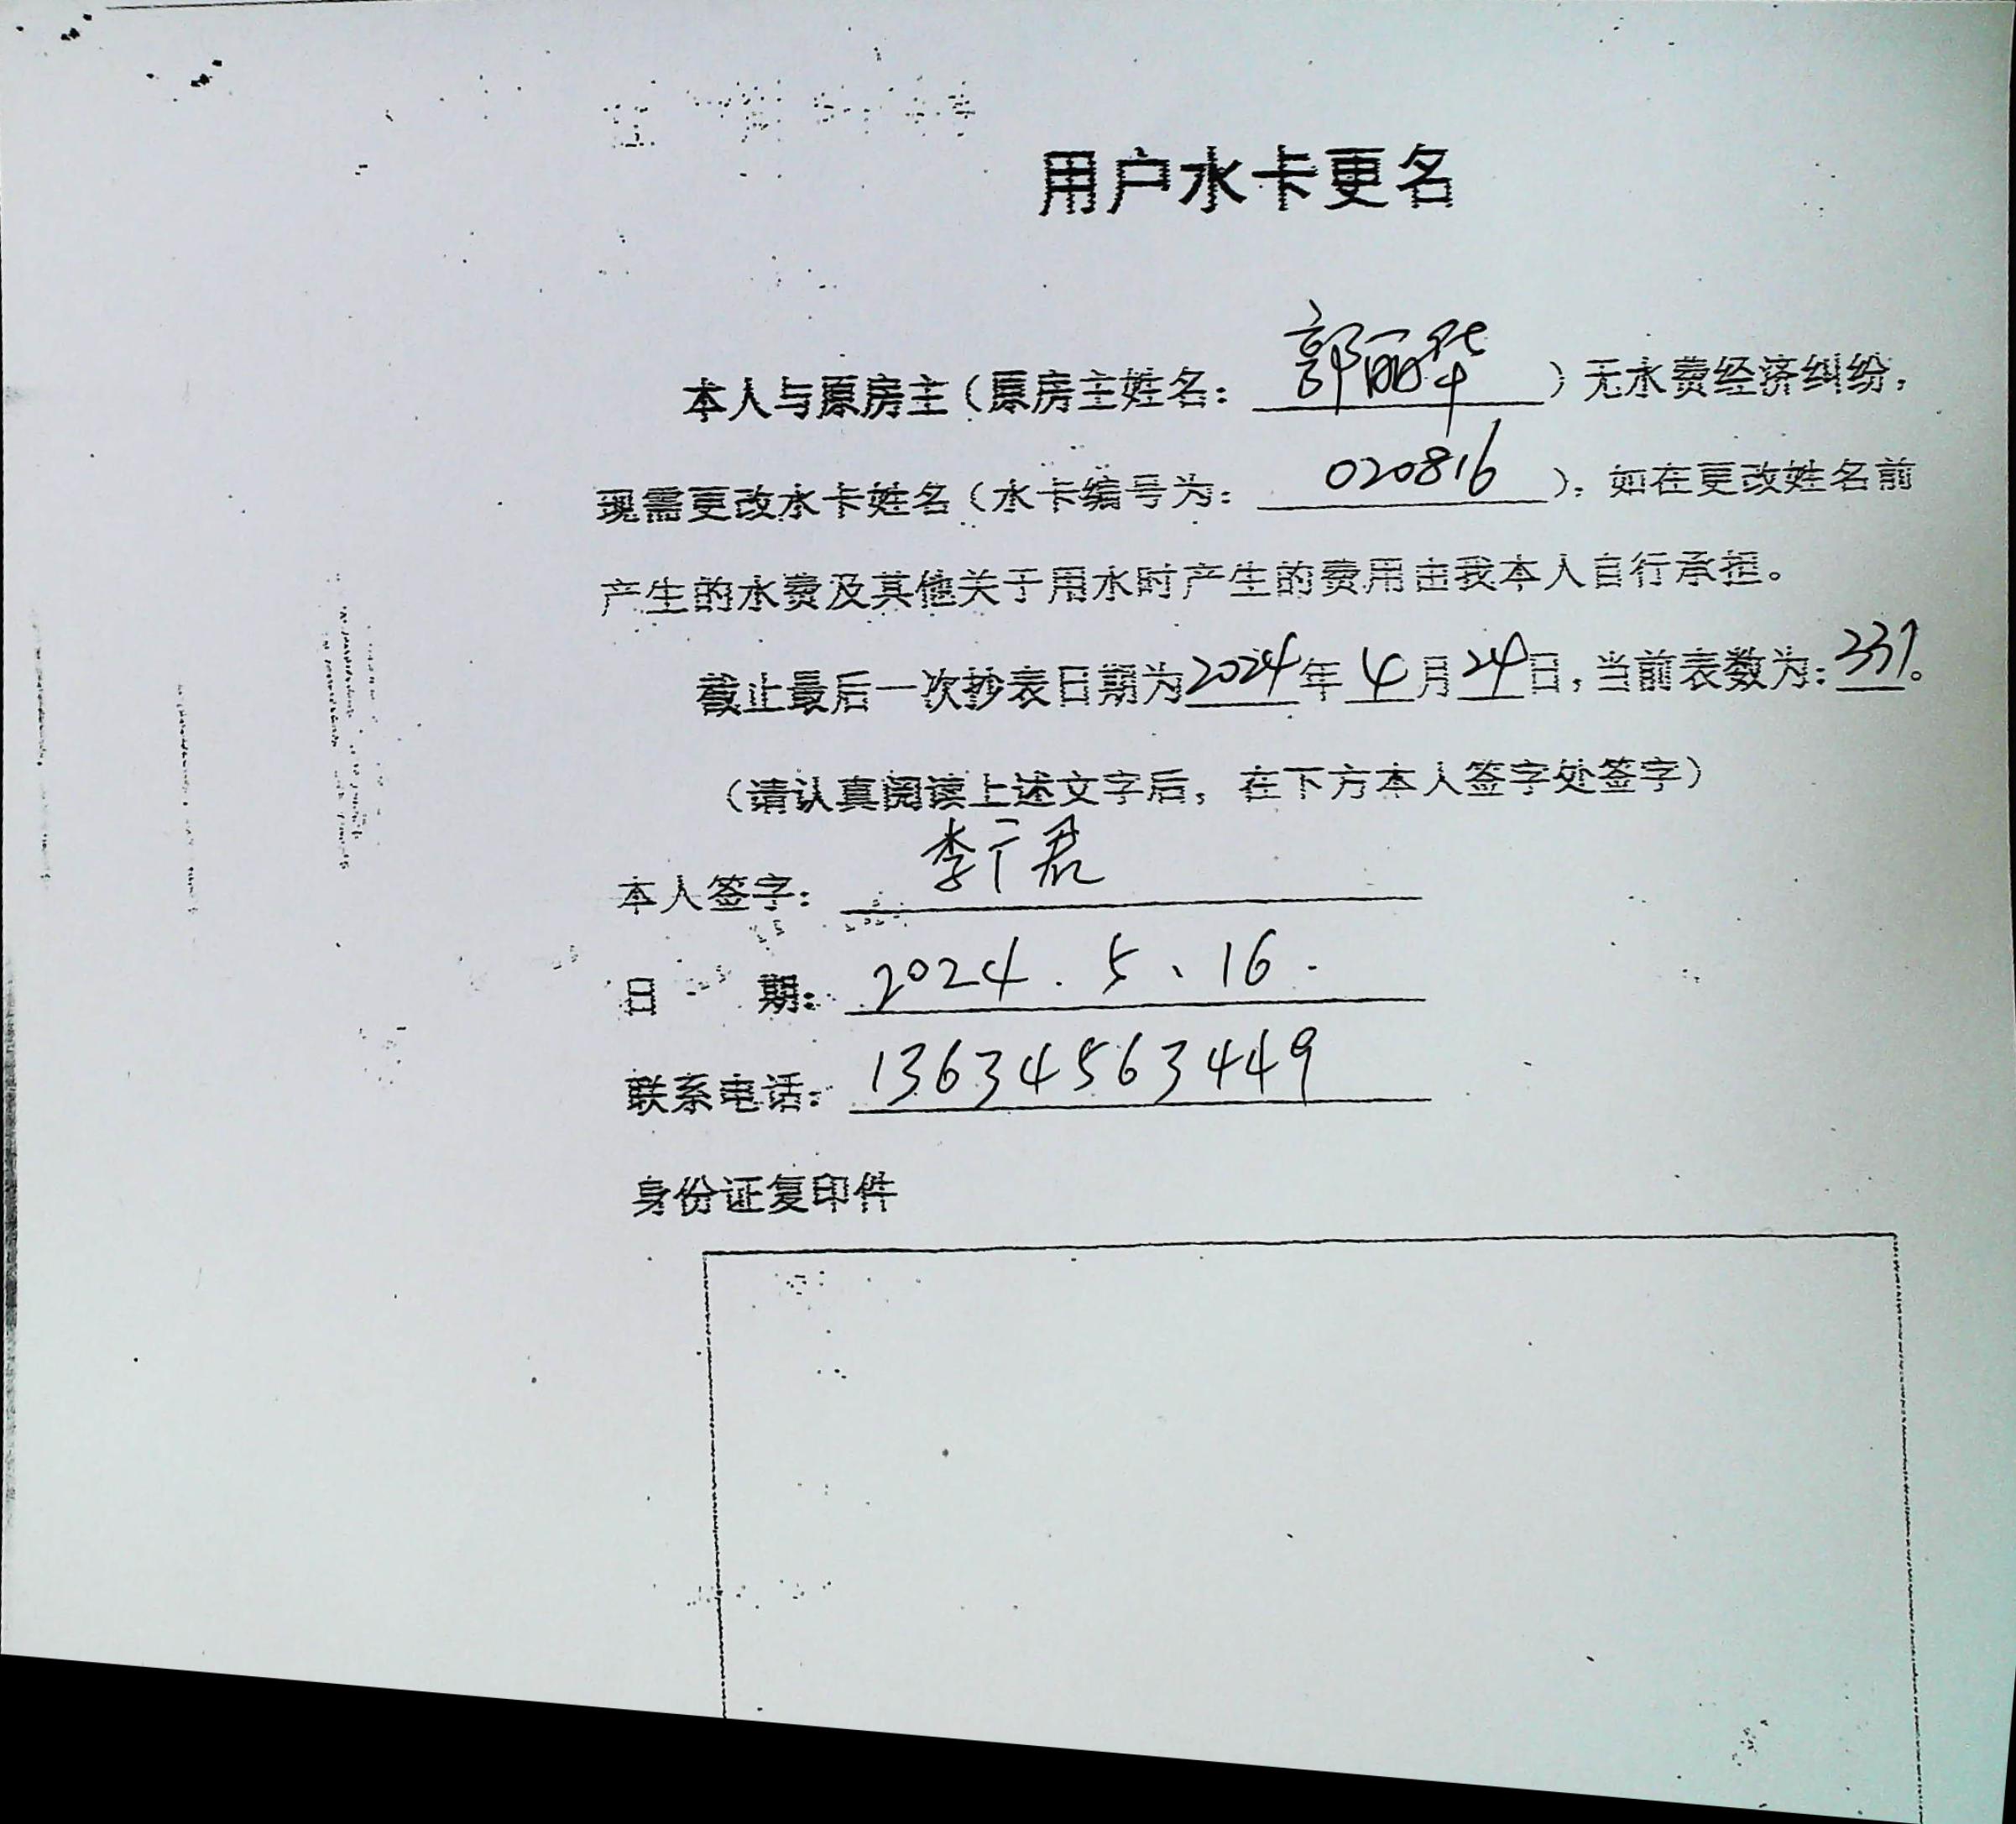 用户水卡更名
本人与原房主（原房主姓名：郭丽华）无水费经济纠纷，
现需更改水卡姓名（水卡编号为：020816），如在更改姓名前
产生的水费及其他关于用水时产生的费用由我本人自行承担。
截止最后一次抄表日期为2024年4月24日，当前表数为：337。
（请认真阅读上述文字后，在下方本人签字处签字）
本人签字：李广君
日 期：2024.5、16.
联系电话：13634563449
身份证复印件